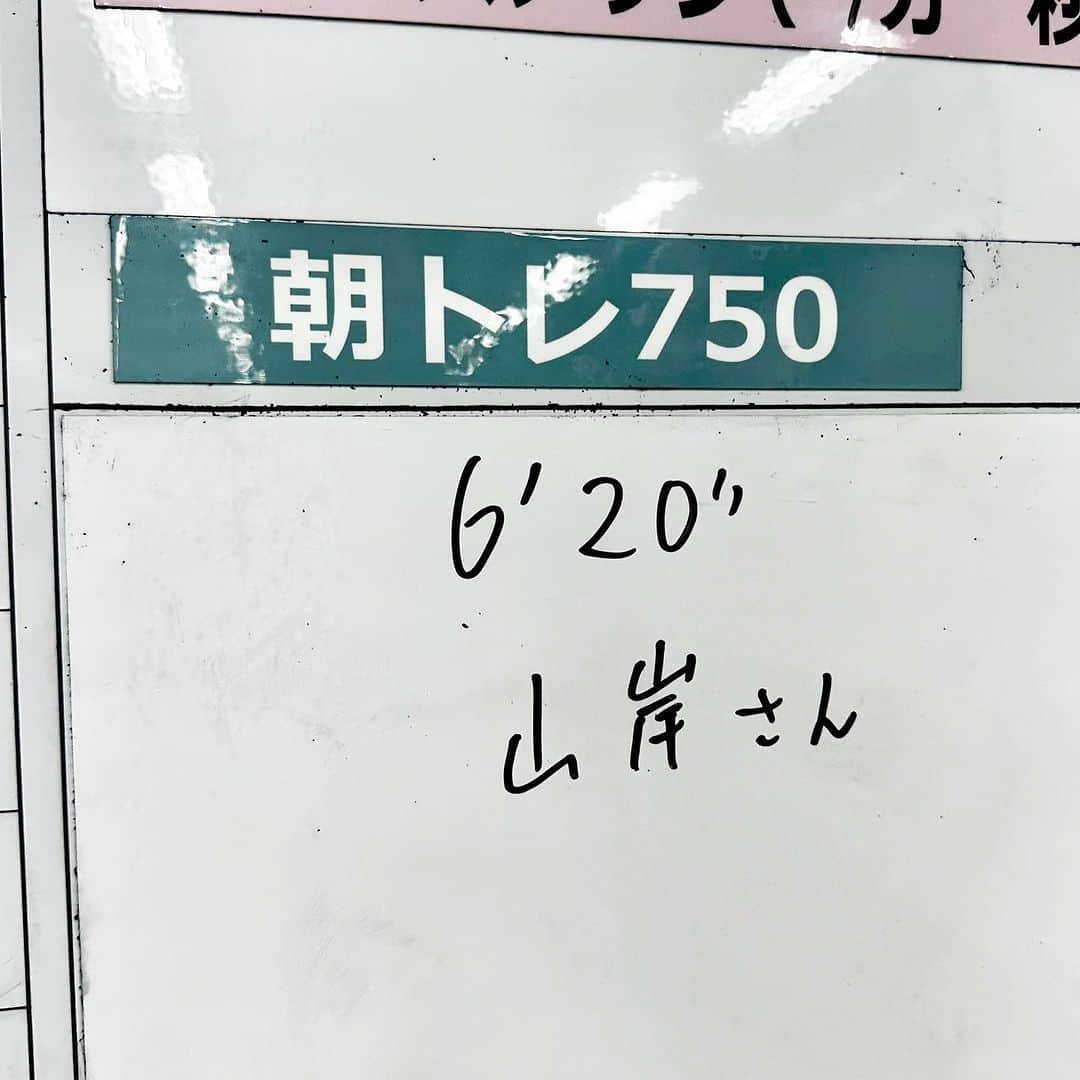 朝トレ750
6'20"
山岸さん